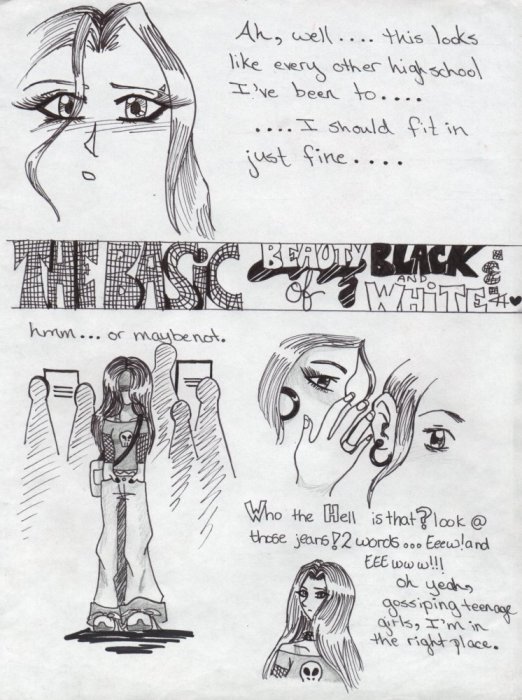 Ah, well.... this looks
like every other highschool
I've been to....
....I should fit in
just fine....
THE BASiC BEAUTY of BLACK AND WHITE
hmm... or maybe not.
Who the Hell is that? look @
those jeans! 2 words... Eeew! and
EEEwww!!!
oh yeah,
gossiping teenage
girls, I'm in
the right place.